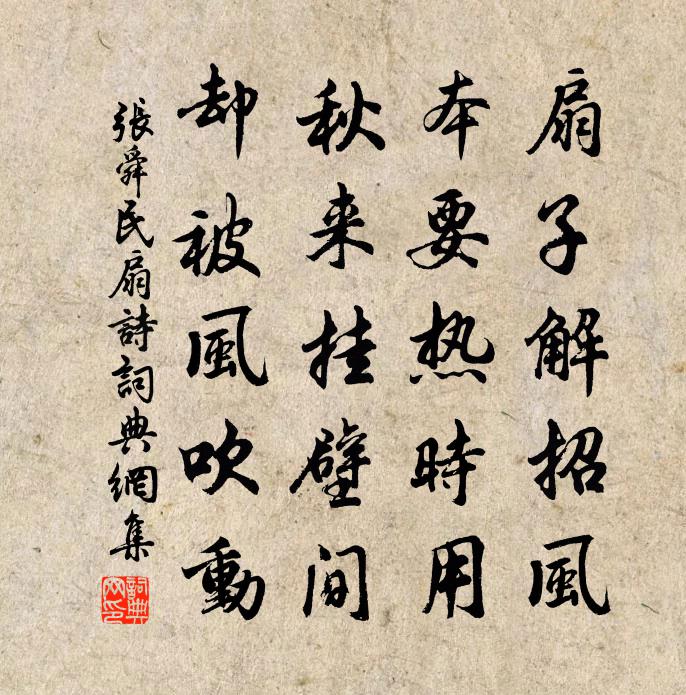 扇子解招風
本要热時用
秋来挂壁间
却被風吹動
張舜民扇詩詞典網集
詞典網印